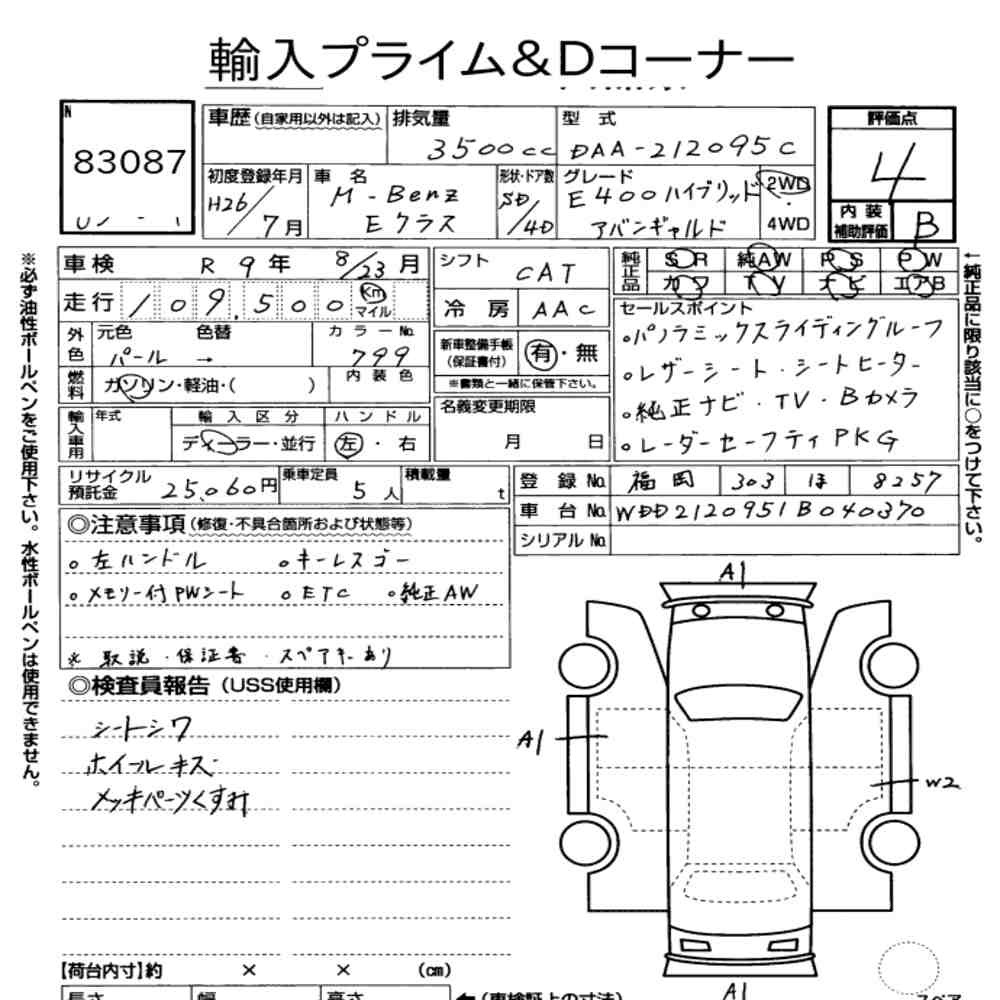 輸入プライム&Dコーナー
N
83087
車歴(自家用以外は記入)
排気量
3500cc
型式
DAA-212095C
評価点
4
初度登録年月
H26/7月
車名
M-Benz
Eクラス
形状・ドア数
SD/4D
グレード
E400ハイブリッド
アバンギャルド
2WD
・
4WD
内装
補助評価
B
車検 R 9年 8/23月
走行 109,500 Km
マイル
外色
元色 色替
パール →
カラーNo.
799
燃料
ガソリン・軽油・( )
内装色
輸入車用
年式
輸入区分
ディーラー・並行
ハンドル
左・右
シフト
CAT
冷房
AAC
新車整備手帳
(保証書付)
有・無
※書類と一緒に保管下さい。
名義変更期限
月 日
純正品
SR 純AW PS PW
カワ TV ナビ エアB
セールスポイント
・パノラミックスライディングルーフ
・レザーシート・シートヒーター
・純正ナビ・TV・Bカメラ
・レーダーセーフティPKG
リサイクル
預託金
25,060円
乗車定員
5人
積載量
t
登録No. 福岡 303 ほ 8257
車台No. WDD2120951B040370
シリアルNo.
◎注意事項(修復・不具合箇所および状態等)
○左ハンドル ○キーレスゴー
○メモリー付PWシート ○ETC ○純正AW
※ 取説・保証書・スペアキーあり
◎検査員報告(USS使用欄)
シートシワ
ホイールキズ
メッキパーツくすみ
【荷台内寸】約 × × (cm)
長さ
幅
高さ
←(車検証上の寸法)
A1
A1
W2
A1
スペア
※必ず油性ボールペンをご使用下さい。水性ボールペンは使用できません。
←純正品に限り該当に○をつけて下さい。